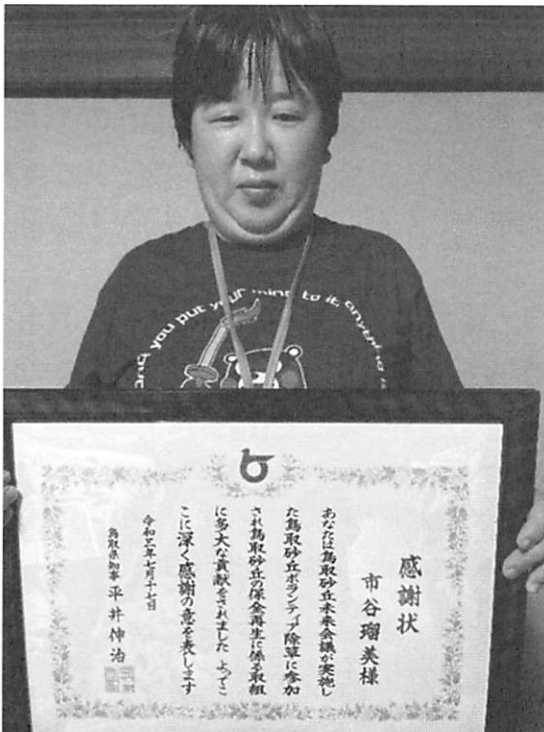 and you put your mind to it, anything is
感謝状
市谷瑠美様
あなたは鳥取砂丘未来会議が実施し
た鳥取砂丘ボランティア除草に参加
され鳥取砂丘の保全再生に係る取組
に多大な貢献をされました よってこ
こに深く感謝の意を表します
令和三年七月十七日
鳥取県知事 平井伸治